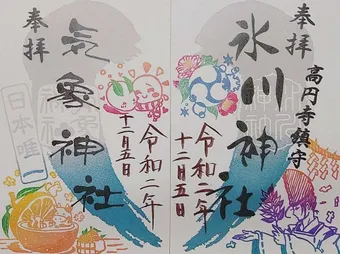 奉拝
高円寺鎮守
氷川神社
令和二年
十二月五日
奉拝
気象神社
日本唯一
令和二年
十二月五日